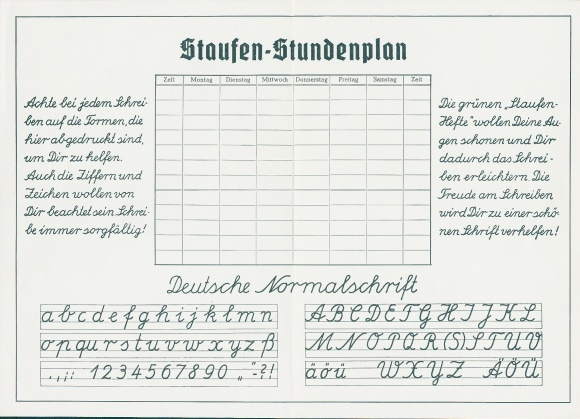 Staufen-Stundenplan
Zeit Montag Dienstag Mittwoch Donnerstag Freitag Samstag Zeit
Achte bei jedem Schrei-
ben auf die Formen, die
hier abgedruckt sind,
um Dir zu helfen.
Auch die Ziffern und
Zeichen wollen von
Dir beachtet sein. Schrei-
be immer sorgfältig!
Die grünen „Staufen-
Hefte" wollen Deine Au-
gen schonen und Dir
dadurch das Schrei-
ben erleichtern. Die
Freude am Schreiben
wird Dir zu einer schö-
nen Schrift verhelfen!
Deutsche Normalschrift
a b c d e f g h i j k l m n
o p q u r s t u v w x y z ß
. , ; : 1 2 3 4 5 6 7 8 9 0 „ " - ? !
A B C D E F G H I J K L
M N O P Q R (S) S T U V
ä ö ü W X Y Z Ä Ö Ü